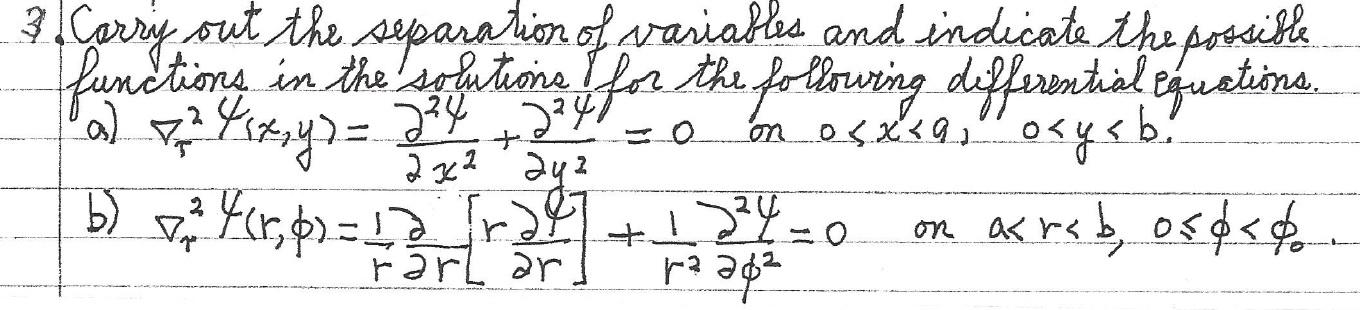 3. Carry out the separation of variables and indicate the possible
functions in the solutions for the following differential equations.
a) ∇ᵣ² Ψ(x,y) = ∂²Ψ/∂x² + ∂²Ψ/∂y² = 0 on 0<x<a, 0<y<b.
b) ∇ᵣ² Ψ(r,ϕ) = 1/r ∂/∂r [r ∂Ψ/∂r] + 1/r² ∂²Ψ/∂ϕ² = 0 on a<r<b, 0≤ϕ<ϕ₀.